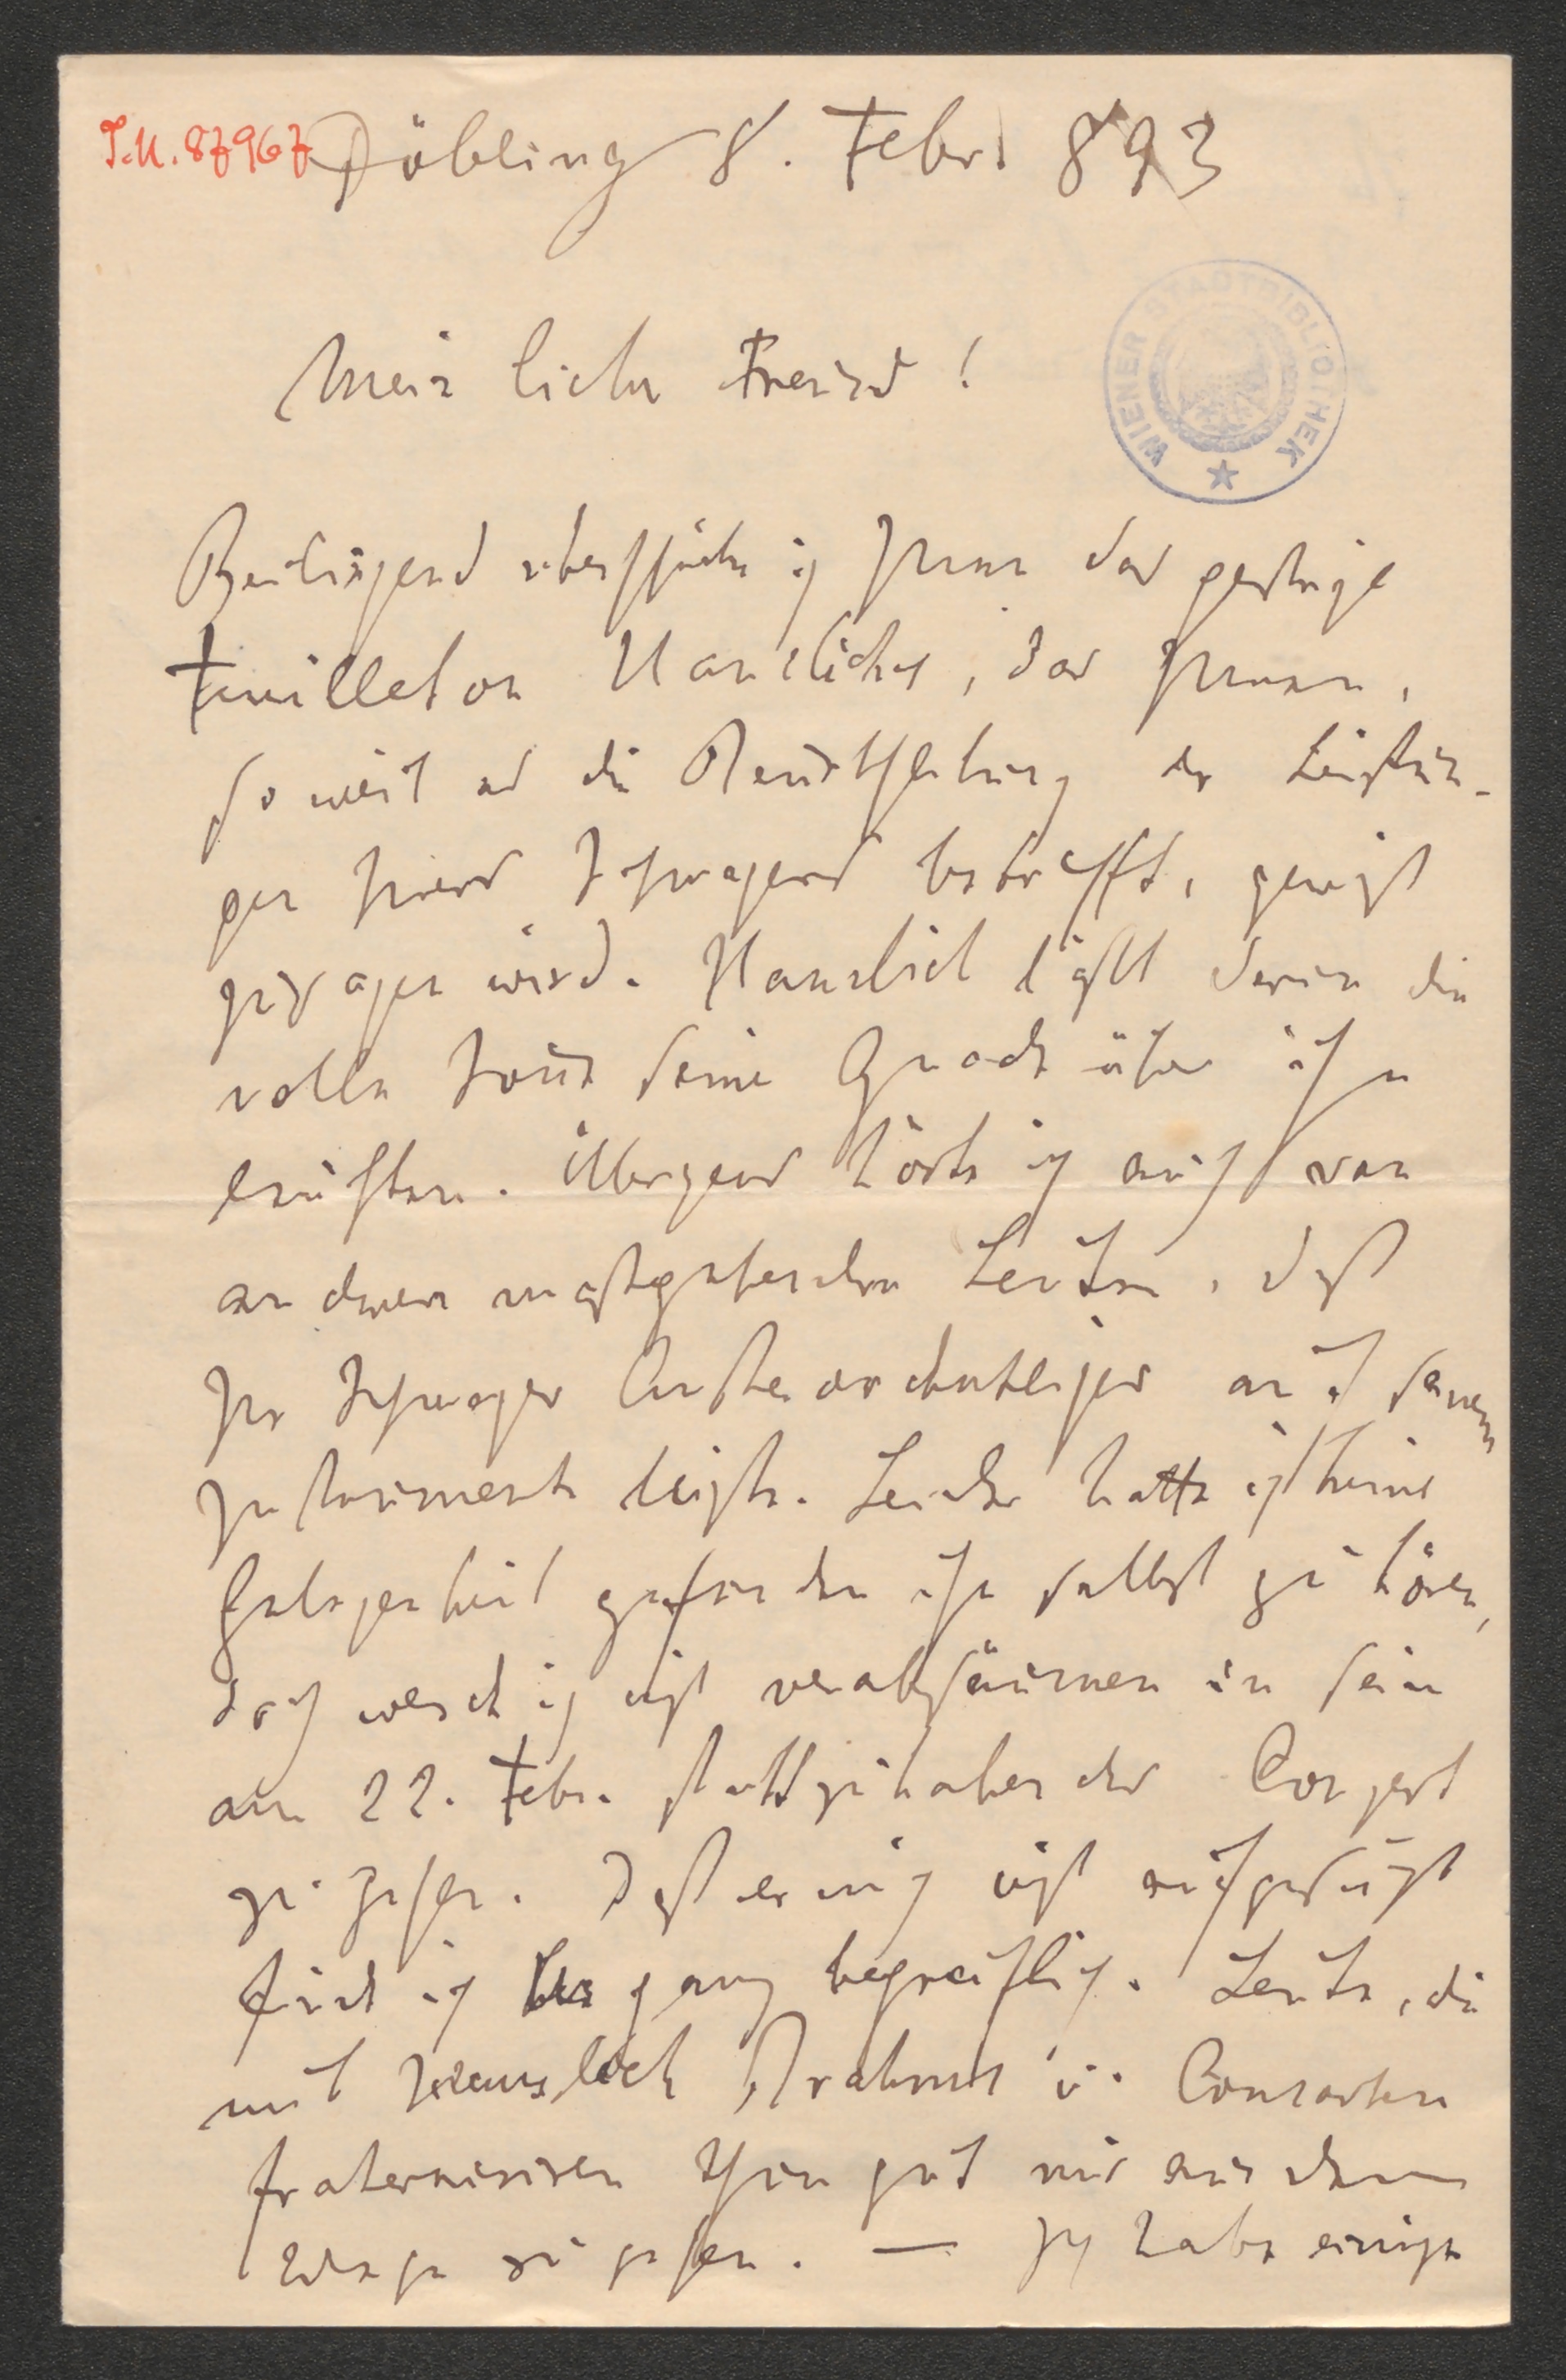 I.N. 87967
Döbling 8. Febr. 893
WIENER STADTBIBLIOTHEK
Mein lieber Freund!
Beiliegend überschicke ich Ihnen das gestrige
Feuilleton Hanslicks, das Ihnen,
so weit es die Beurtheilung der Leistun-
gen Ihres Schwagers betrifft, gewiß
zusagen wird. Hanslick läßt darin die
volle Sonne seiner Gnade über ihn
leuchten. Übrigens hörte ich auch von
anderen maßgebenden Leuten, daß
Ihr Schwager Außerordentliches auf seinem
Instrumente leiste. Leider hatte ich keine
Gelegenheit gefunden ihn selbst zu hören,
doch werde ich nicht verabsäumen in sein
am 22. Febr. stattzuhabendes Conzert
zu gehen. Daß er mich nicht aufgesucht
finde ich ganz begreiflich. Leute, die
mit Hanslick Brahms u. Consorten
fraternisiren thun gut mir aus dem
Wege zu gehen. — Ich habe einige